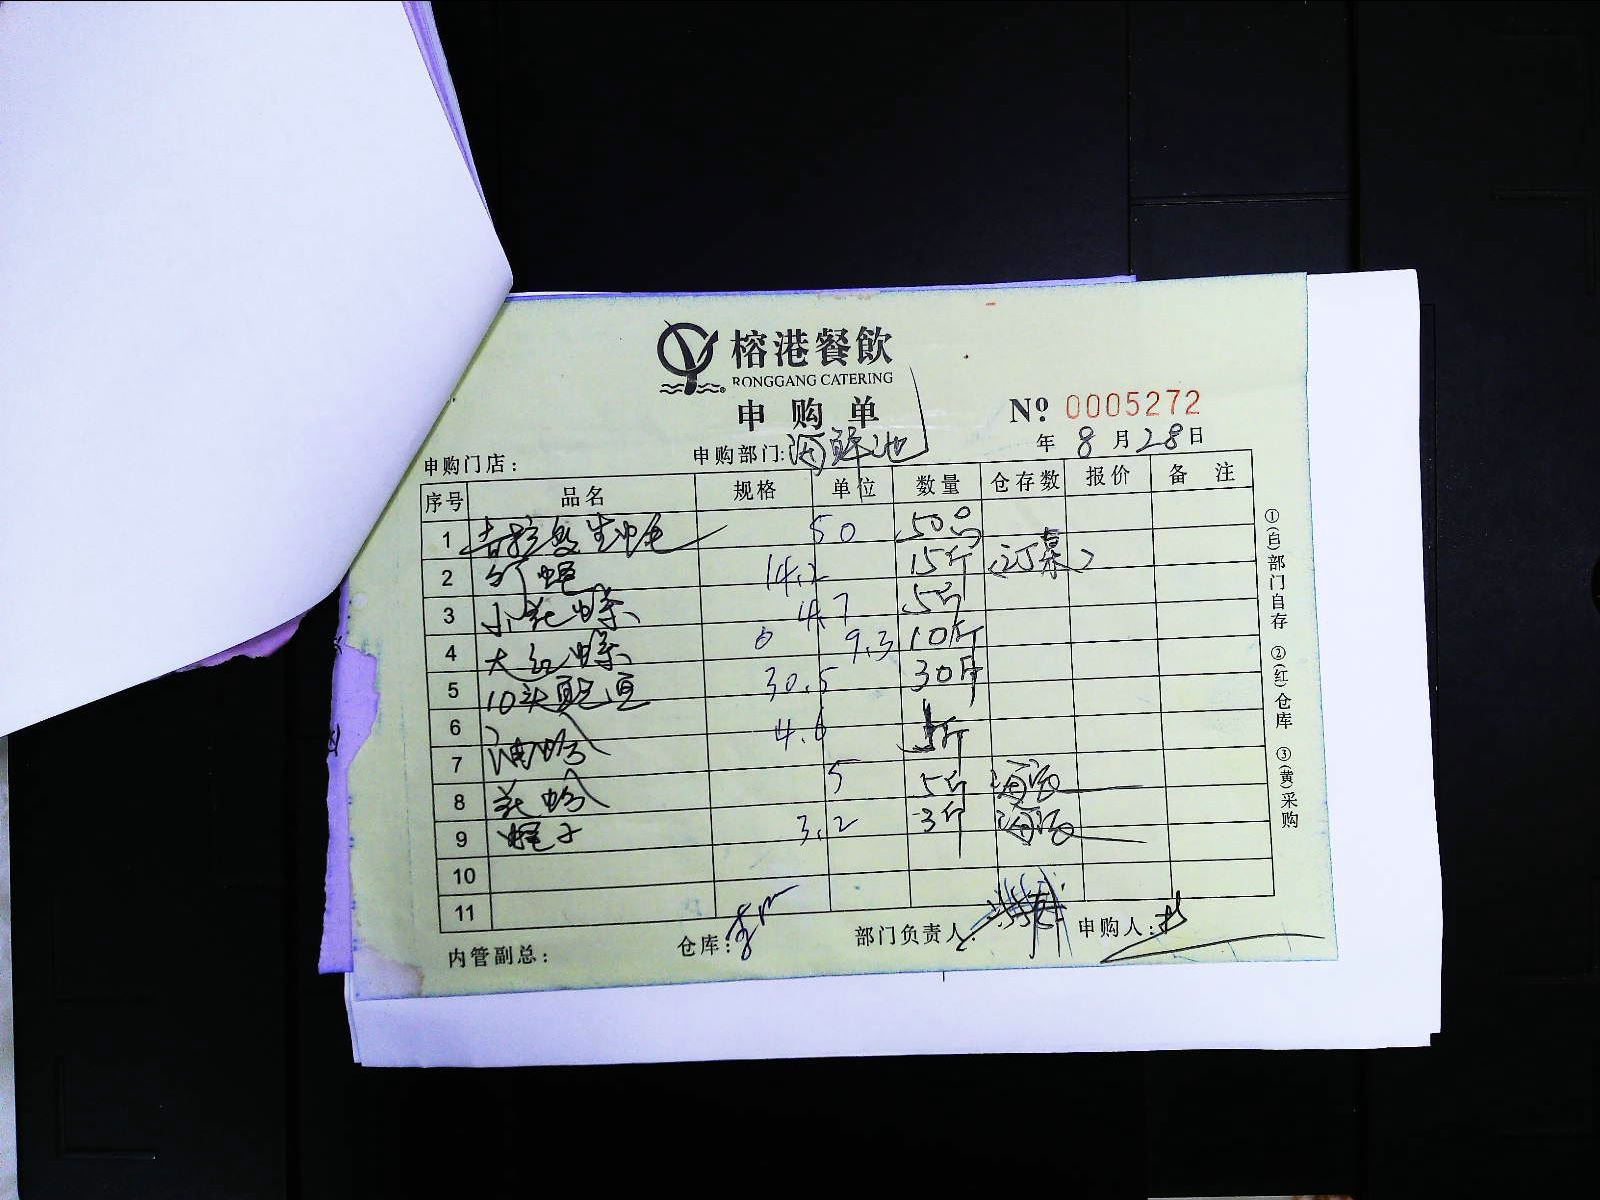 榕港餐飲
RONGGANG CATERING
申购单
№ 0005272
年 8 月 28 日
申购门店：
申购部门：海鲜池
序号 品名 规格 单位 数量 仓存数 报价 备注
1 吉拉多生蚝 50 50只
2 14.2 15斤
3 小花螺 4.7 5斤
4 大红螺 6 9.3 10斤
5 10头 30.5 30斤
6 4.6 斤
7 油蛤
8 花蛤 5 5斤
9 蛏子 3.2 3斤
10
11
内管副总：
仓库：
部门负责人：
申购人：
①(白)部门自存 ②(红)仓库 ③(黄)采购